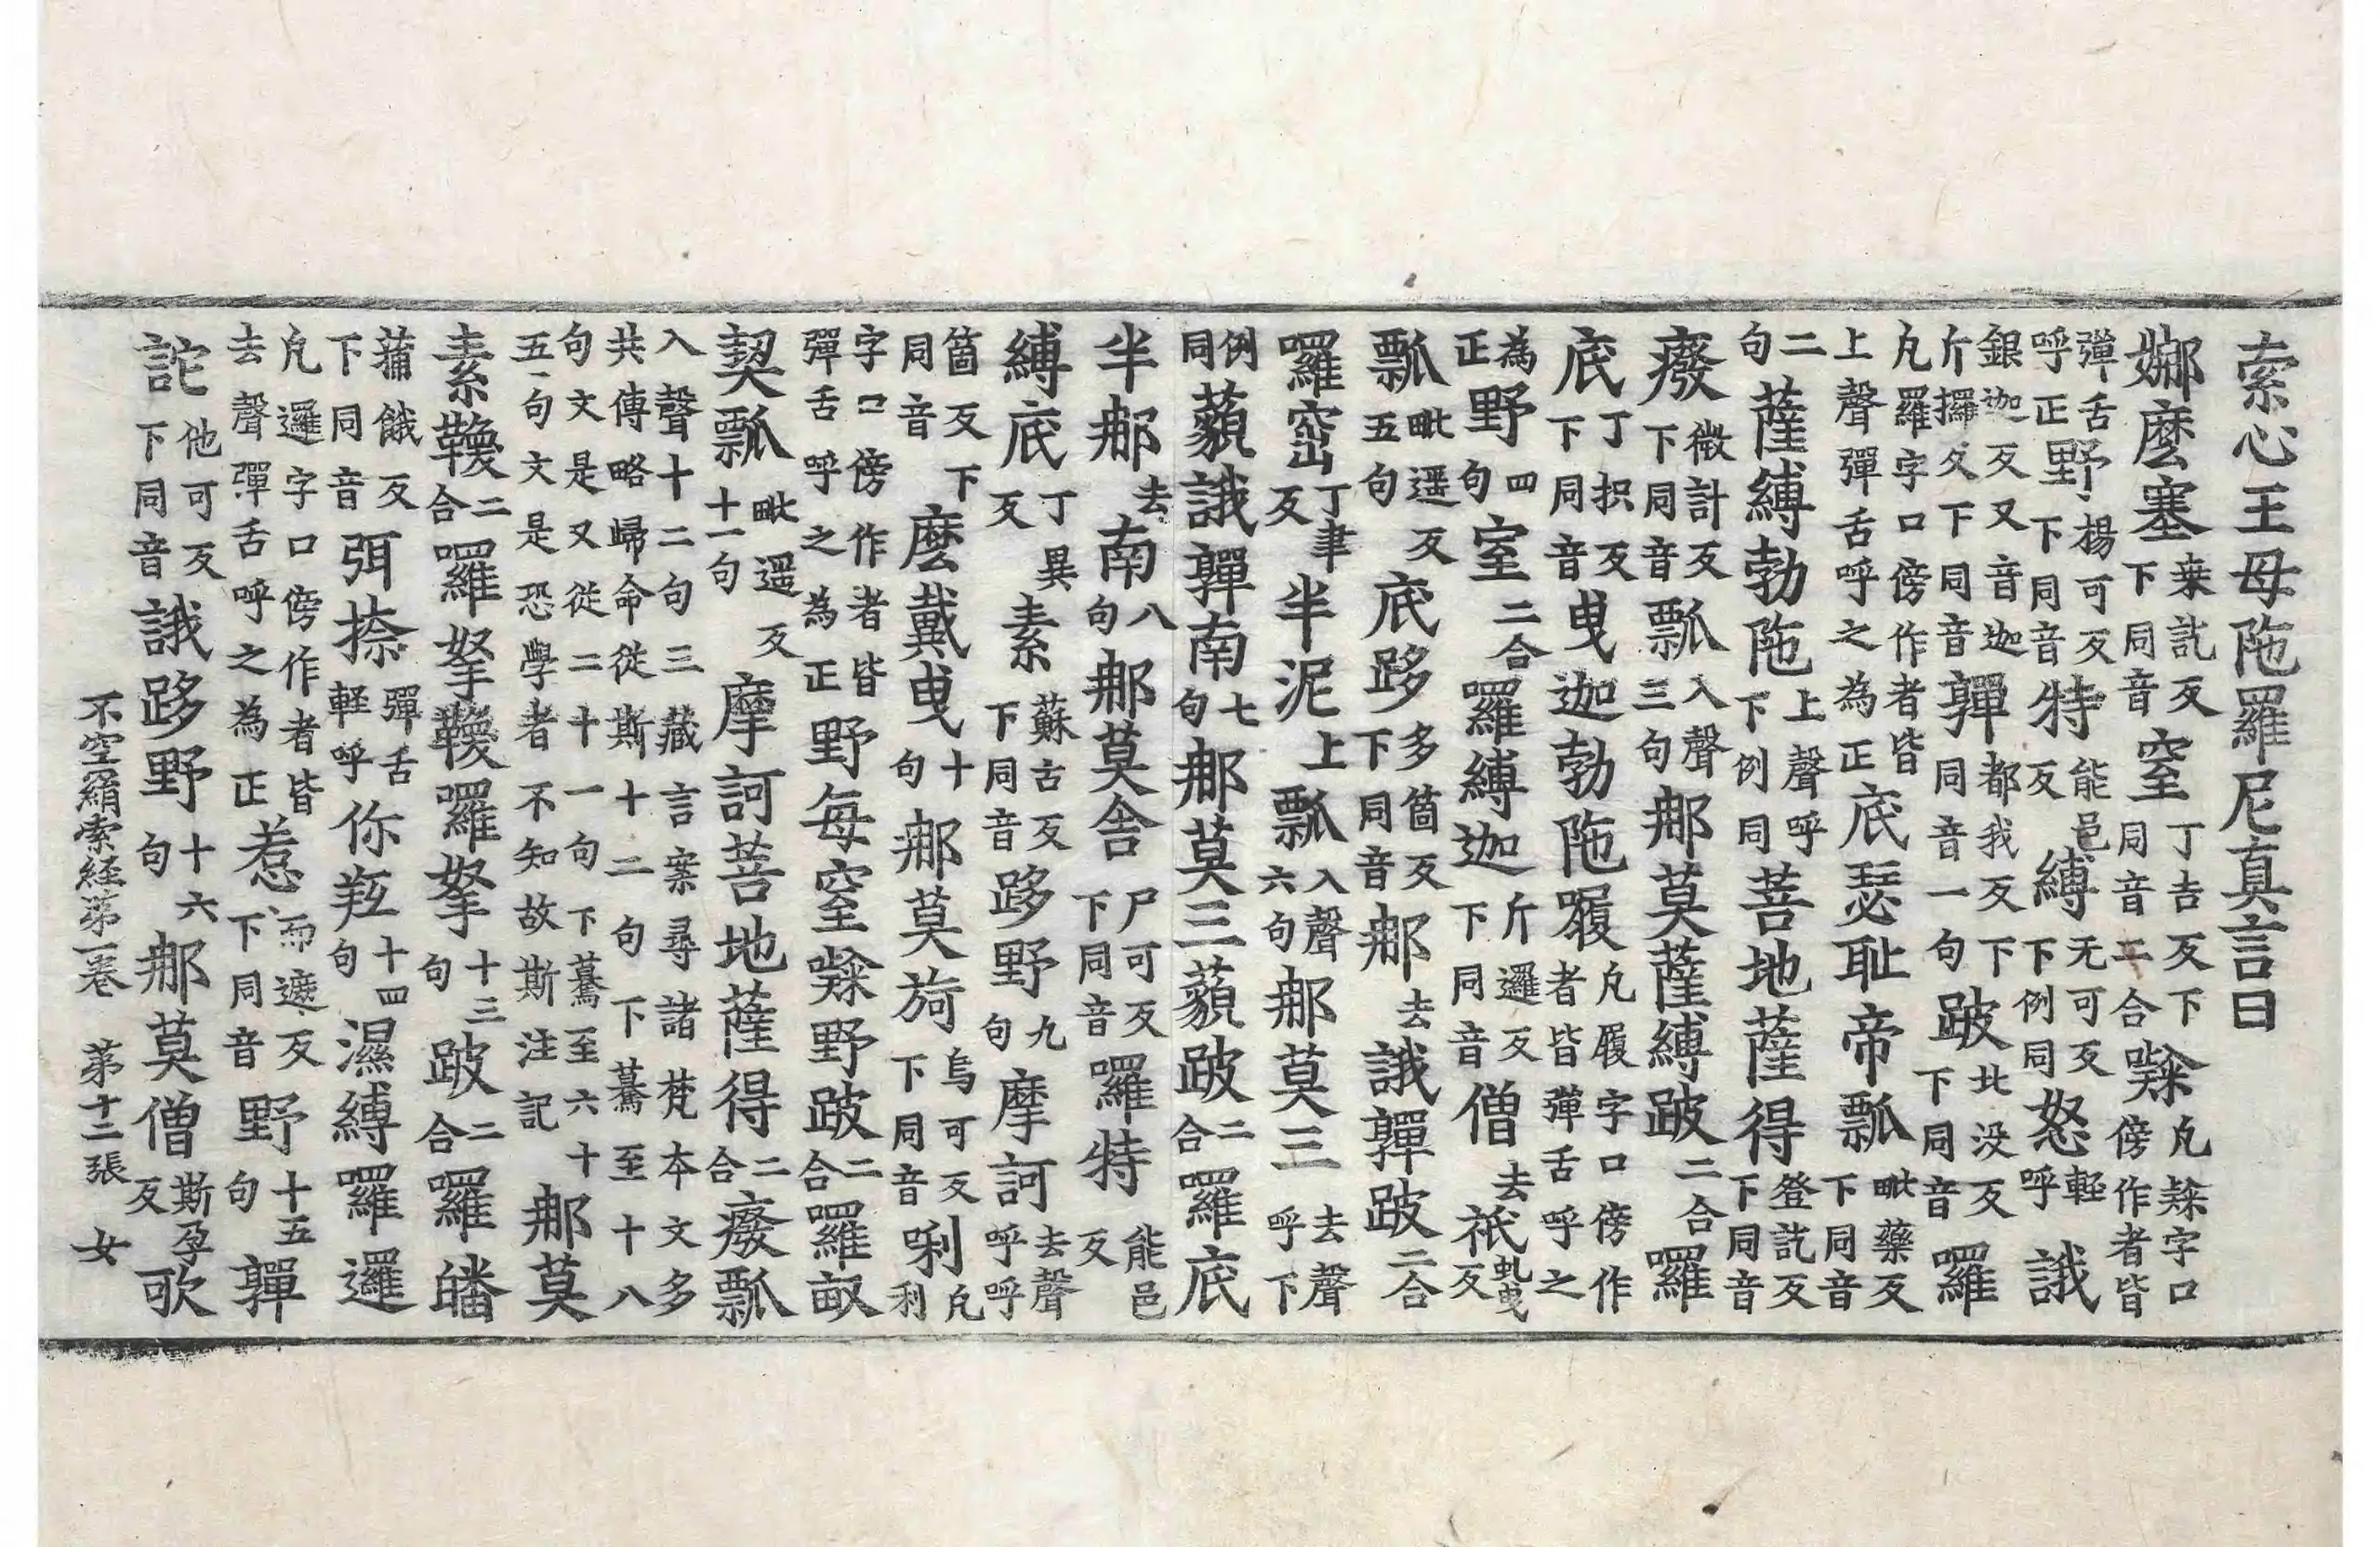 索心王母陁羅尼真言曰
娜麽塞桒訖反下同音窒丁吉反下同音二合㘑凡㘑字口傍作者皆
彈舌呼正野揚可反下同音特能邑反縛无可反下例同怒輕呼誐
銀迦反又音迦斤攞反下同音嚲都我反下同音一句跛北没反下同音囉
凡羅字口傍作者皆上聲彈舌呼之為正底瑟耻帝瓢毗藥反下同音
二句薩縛勃陁上聲呼下例同菩地薩得登訖反下同音
癈微計反下同音瓢入聲三句那莫薩縛跛二合囉
底丁抧反下同音曳迦勃陁履凡履字口傍作者皆彈舌呼之
為正野四句室二合囉縛迦斤邏反下同音僧去祇虬曳反
瓢毗遥反五句底跢多箇反下同音那去誐嚲跛二合
囉窋丁聿反半泥上瓢入聲六句那莫三去聲呼下
例同藐誐嚲南七句那莫三藐跛二合囉底
半那去南八句那莫舍尸可反下同音囉特能邑反
縛底丁異反素蘇古反下同音跢野九句摩訶去聲呼呼
箇反下同音麽戴曳十句那莫㫊烏可反下同音唎凡利
字口傍作者皆彈舌呼之為正野每窒㘑野跛二合囉㕠
契瓢毗遥反十一句摩訶菩地薩得二合癈瓢
入聲十二句三藏言案尋諸梵本文多共傳略歸命從斯十二句下驀至十八
句文是又從二十一句下驀至六十五句文是恐學者不知故斯注記那莫
素𩎟二合囉拏𩎟囉拏十三句跛二合囉皤
蒱餓反下同音弭捺彈舌輕呼你䟓十四句濕縛囉邏
凡邏字口傍作者皆去聲彈舌呼之為正惹而遮反下同音野十五句嚲
詑他可反下同音誐跢野十六句那莫僧斯孕反歌
不空羂索經第一卷 第十二張 女